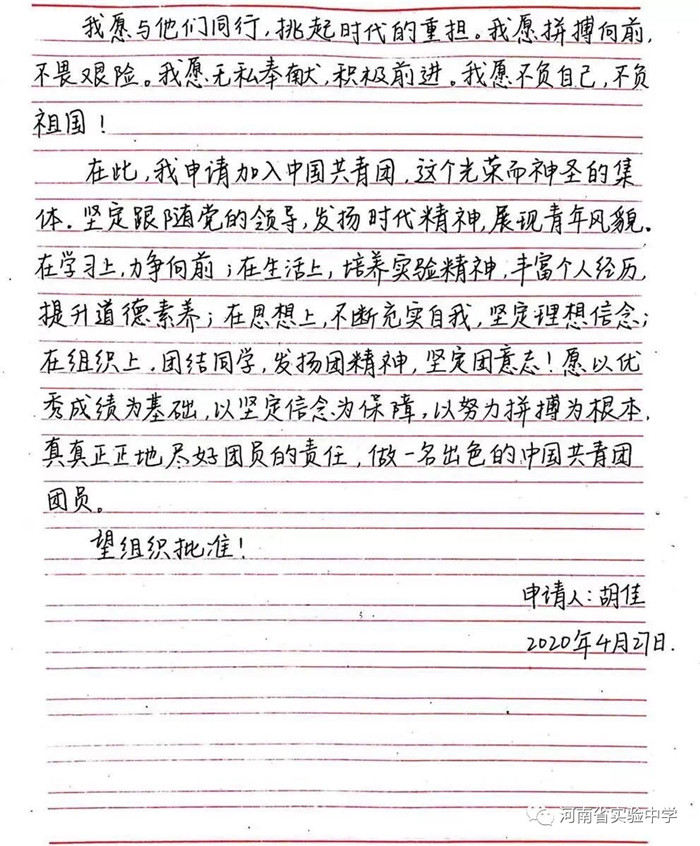 我愿与他们同行，挑起时代的重担。我愿拼搏向前，
不畏艰险。我愿无私奉献，积极前进。我愿不负自己，不负
祖国！
在此，我申请加入中国共青团，这个光荣而神圣的集
体。坚定跟随党的领导，发扬时代精神，展现青年风貌。
在学习上，力争向前；在生活上，培养实验精神，丰富个人经历，
提升道德素养；在思想上，不断充实自我，坚定理想信念；
在组织上，团结同学，发扬团精神，坚定团意志！愿以优
秀成绩为基础，以坚定信念为保障，以努力拼搏为根本，
真真正正地尽好团员的责任，做一名出色的中国共青团
团员。
望组织批准！
申请人：胡佳
2020年4月27日.
河南省实验中学